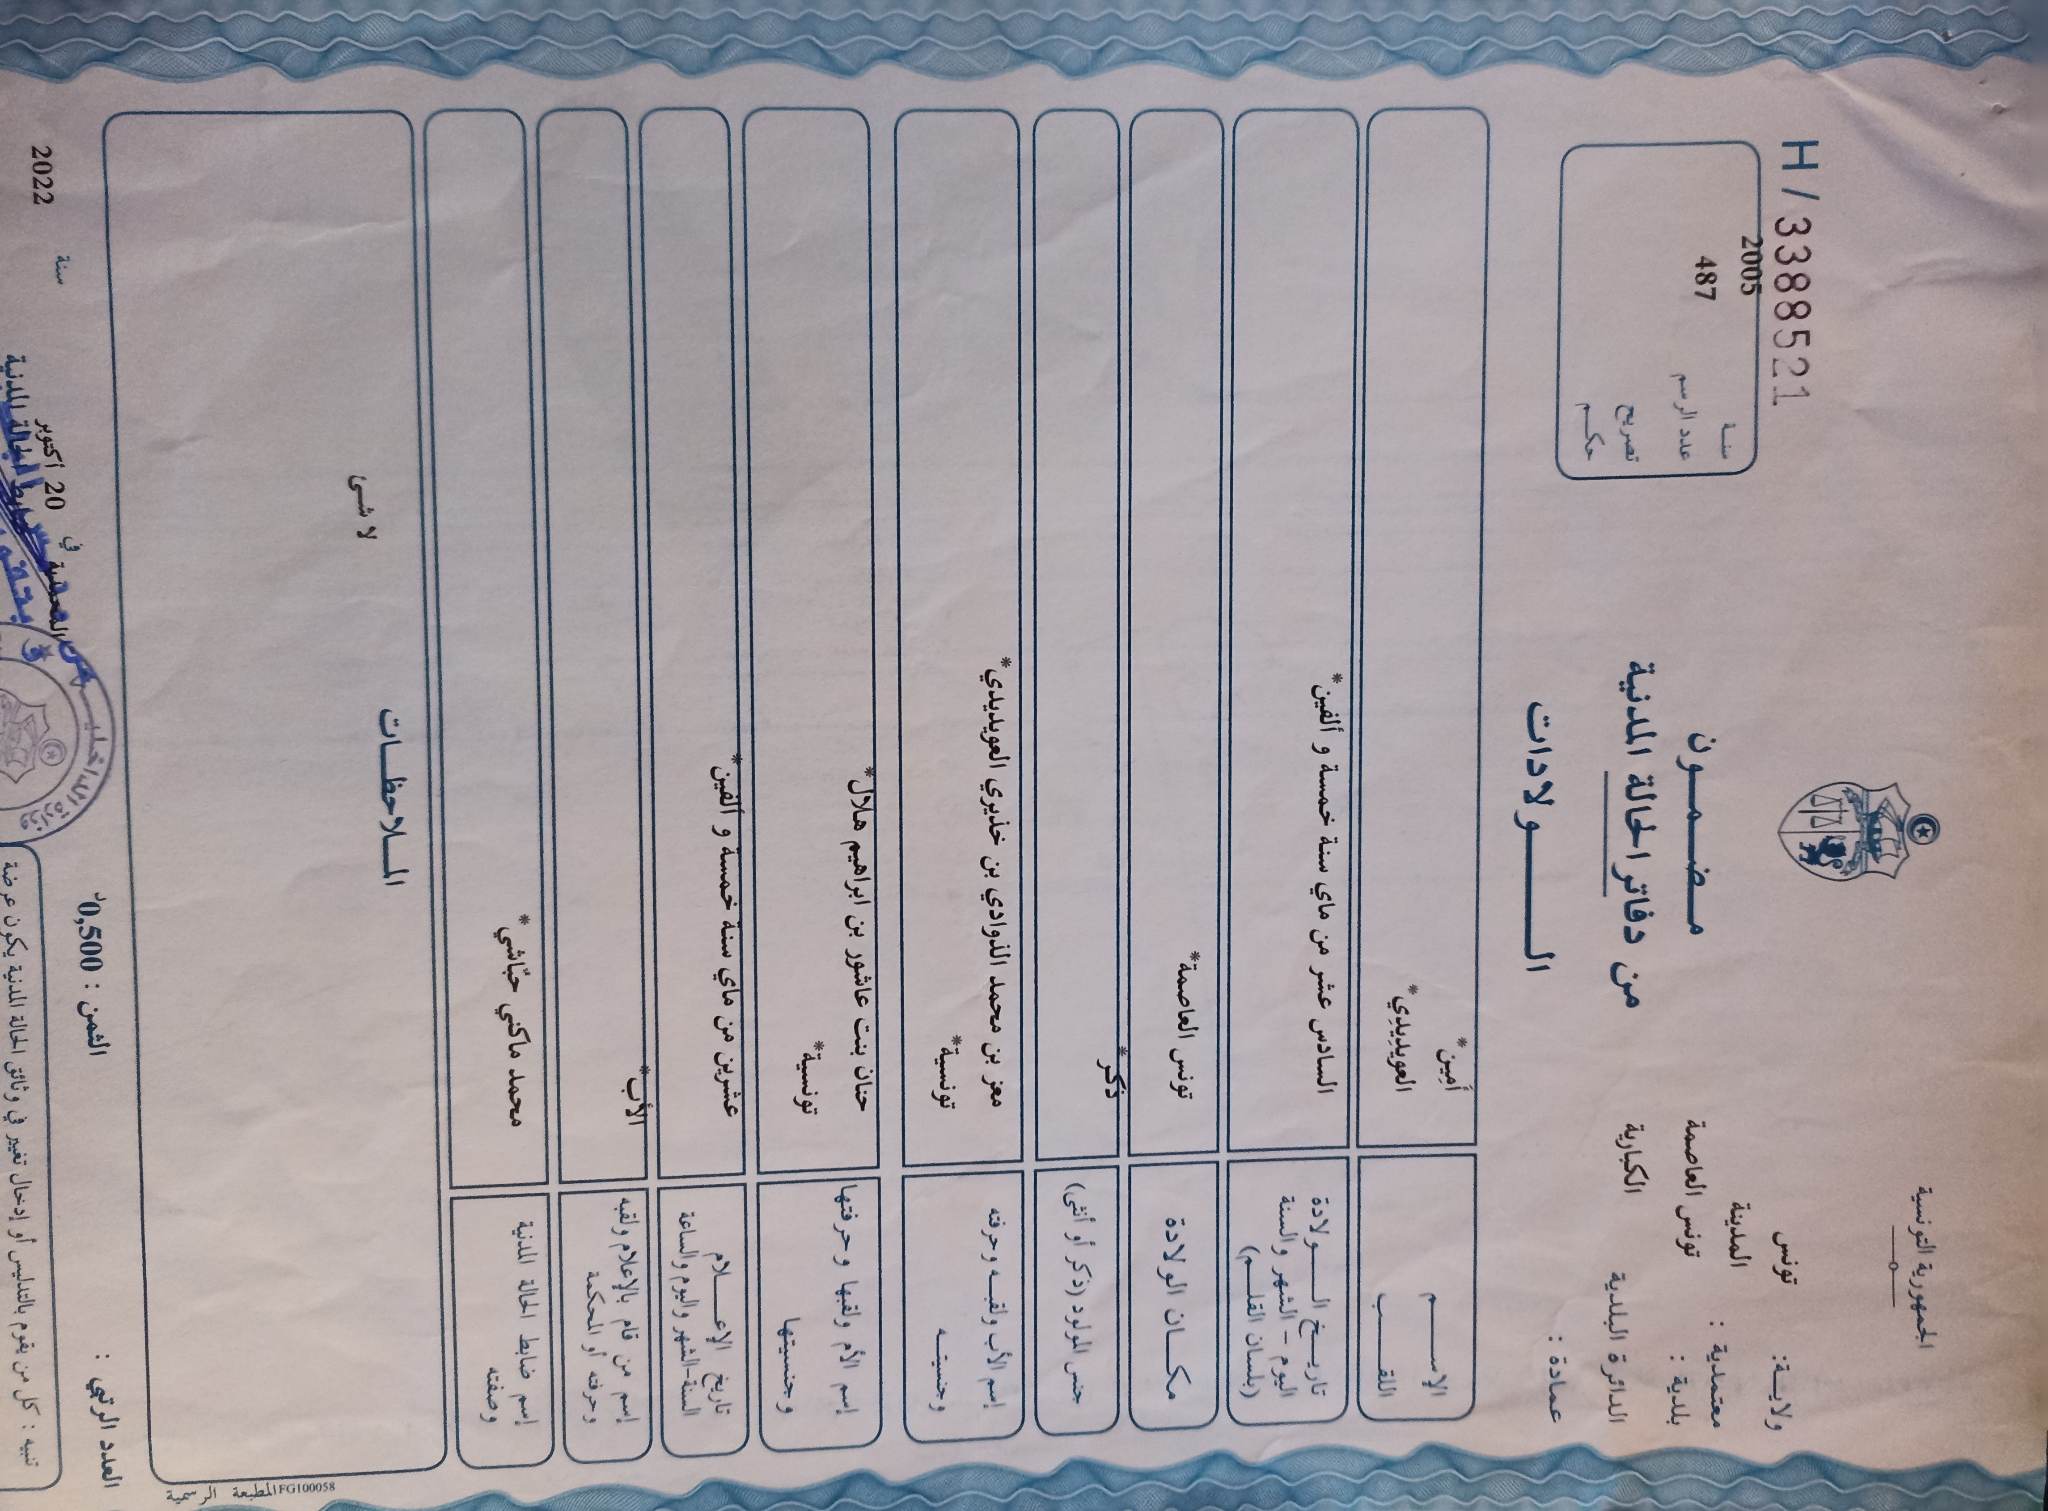 الجمهورية التونسية
ولايـة: تونس
معتمدية : المدينة
بلدية : تونس العاصمة
الدائرة البلدية الكبارية
عمادة :
مـضـمـون
من دفاتر الحالة المدنية
الـولادات
H / 3388521
سنـة 2005
عدد الرسم 487
تصريح
حكـم
الإسـم
أَمِين*
اللقـب
العويدِيدِي*
تاريـخ الـولادة
اليوم - الشهر والسنة
(بلسان القلـم)
السادس عشر من ماي سنة خمسة و ألفين*
مكـان الولادة
تونس العاصمة*
جنس المولود (ذكر أو أنثى)
ذكر*
إسم الأب ولقبـه وحرفته
معز بن محمد الذوادي بن خذيري العويديدي*
وجنسيتـه
تونسية*
إسم الأم ولقبها وحرفتها
حنان بنت عاشور بن ابراهيم هلال*
وجنسيتها
تونسية*
تاريخ الإعـلام
السنة-الشهر واليوم والساعة
عشرين من ماي سنة خمسة و ألفين*
إسم من قام بالإعلام ولقبه
وحرفته أو المحكمة
الأب*
إسم ضابط الحالة المدنية
وصفته
محمد ماكني حبّاشي*
المـلاحظـات
لا شـئ
المطبعة الرسمية FG100058
العدد الرتبي :
الثمن : 0,500د
في 20 أكتوبر سنة 2022
ضابط الحالة المدنية
وزارة الداخلية
تنبيه : كل من يقوم بالتدليس أو إدخال تغيير في وثائق الحالة المدنية يكون عرضة